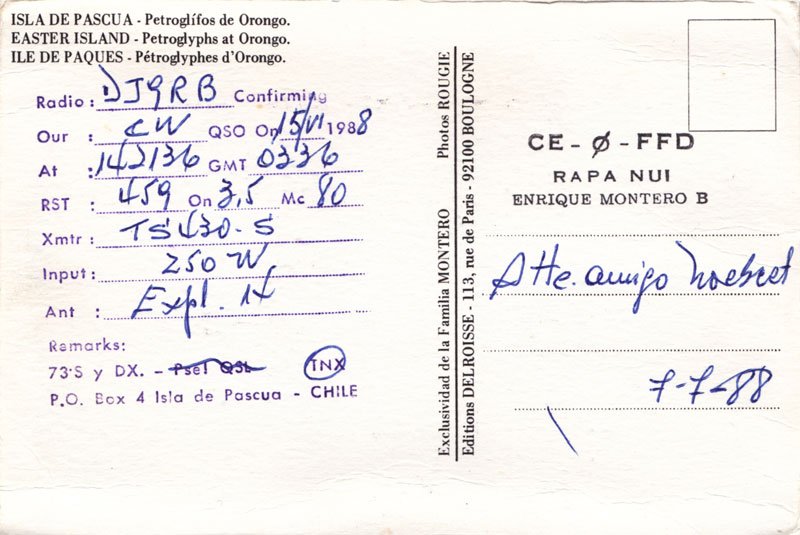 ISLA DE PASCUA - Petroglífos de Orongo.
EASTER ISLAND - Petroglyphs at Orongo.
ILE DE PAQUES - Pétroglyphes d'Orongo.
Radio: DJ9RB Confirming
Our : CW QSO On 15/VI 1988
At : GMT 0336
RST : 459 On 3,5 Mc 80
Xmtr : TS430-S
Input: 250 W
Ant : Expl. 14
Remarks:
73'S y DX. - Psel QSL TNX
P.O. Box 4 Isla de Pascua - CHILE
Exclusividad de la Familia MONTERO Photos ROUGIE
Editions DELROISSE - 113, rue de Paris - 92100 BOULOGNE
CE-Ø-FFD
RAPA NUI
ENRIQUE MONTERO B
Atte. amigo
7-7-88